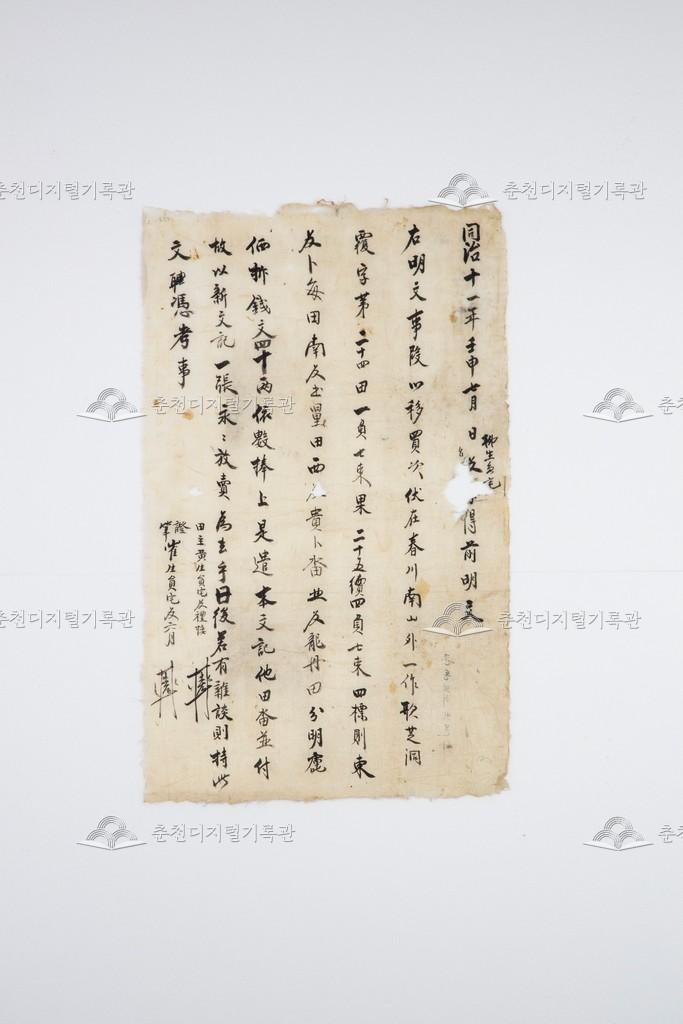 同治十一年壬申七月 日 得前明文
右明文事段以移買次伏在春川南山外一作歌芝洞
覆字第二十四田一負七束果二十五價四負七束四標則東
反卜每田南反量田西 貴卜畓 北反龍丹田分明處
価折錢文四十兩依數捧上是遣本文記他田畓並付
故以新文記一張永〻放賣爲去乎日後若有雜談則持此
文憑考事
田主黃生員宅奴
證筆崔生員宅奴六月
춘천디지털기록관
춘천디지털기록관
춘천디지털기록관
춘천디지털기록관
춘천디지털기록관
춘천디지털기록관
춘천디지털기록관
춘